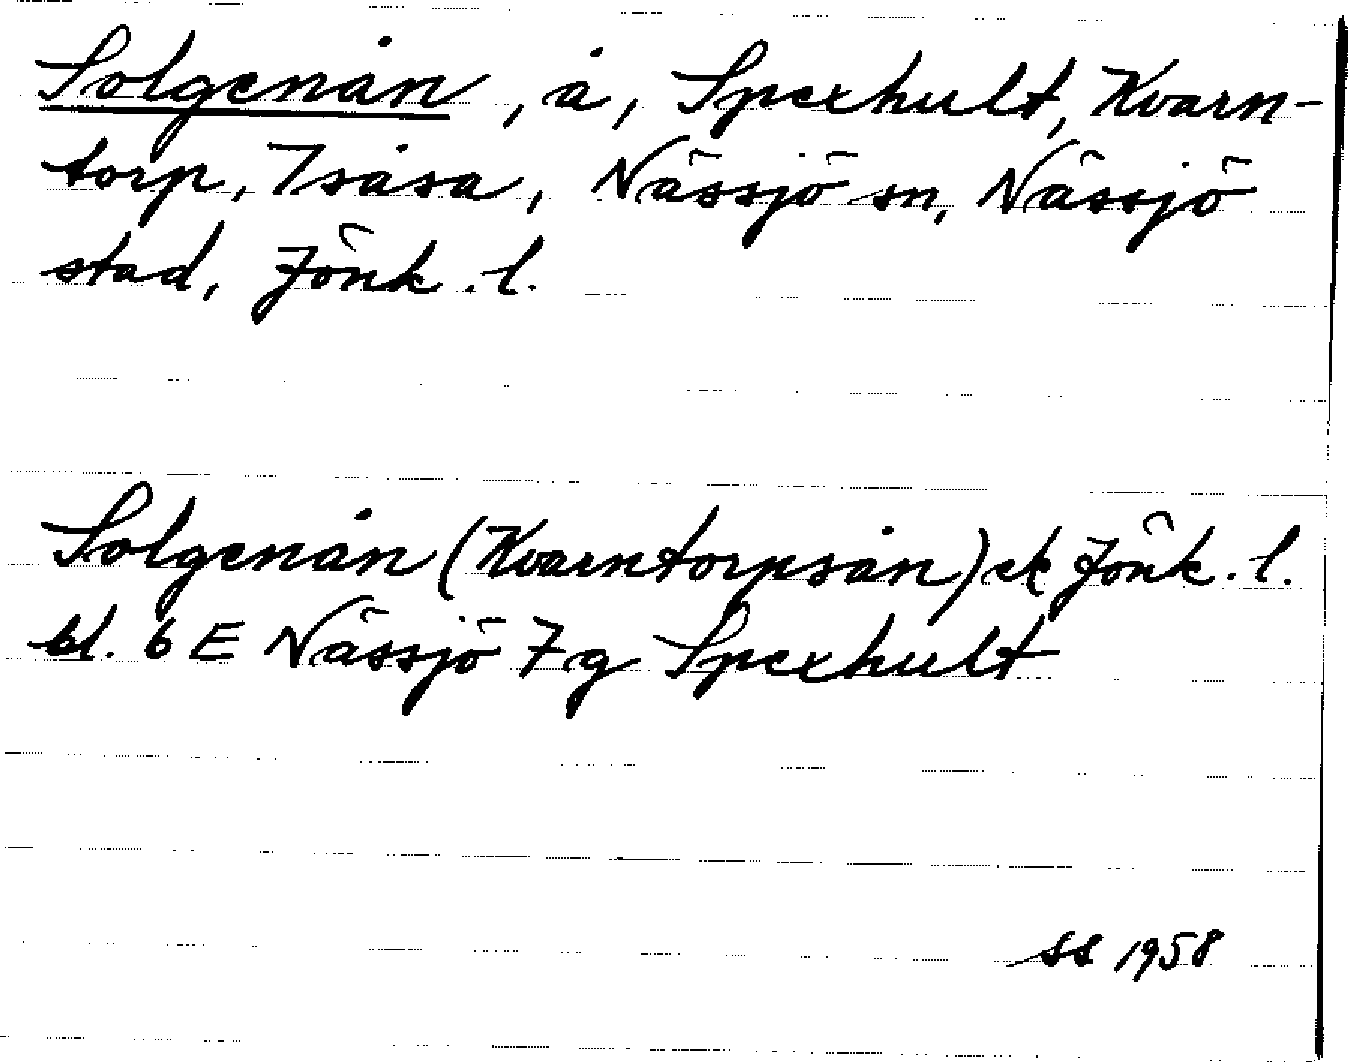 Solgenån, å, Spexhult, Kvarn-
torp, Isåsa, Nässjö sn, Nässjö
stad, Jönk.l.
Solgenån (Kvarntorpsån) ek Jönk.l.
bl. 6 E Nässjö 7 g Spexhult
SS 1958